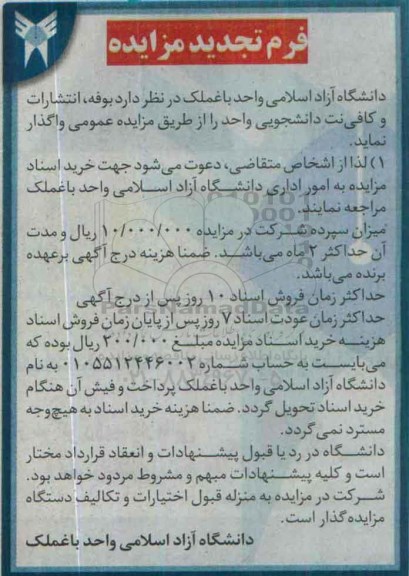 فرم تجدید مزایده
دانشگاه آزاد اسلامی واحد باغملک در نظر دارد بوفه، انتشارات
و کافی‌نت دانشجویی واحد را از طریق مزایده عمومی واگذار
نماید.
۱) لذا از اشخاص متقاضی، دعوت می‌شود جهت خرید اسناد
مزایده به امور اداری دانشگاه آزاد اسلامی واحد باغملک
مراجعه نمایند.
میزان سپرده شرکت در مزایده ۱۰/۰۰۰/۰۰۰ ریال و مدت
آن حداکثر ۲ ماه می‌باشد. ضمنا هزینه درج آگهی برعهده
برنده می‌باشد.
حداکثر زمان فروش اسناد ۱۰ روز پس از درج آگهی
حداکثر زمان عودت اسناد ۷ روز پس از پایان زمان فروش اسناد
هزینه خرید اسناد مزایده مبلغ ۲۰۰/۰۰۰ ریال بوده که
می‌بایست به حساب شماره ۰۱۰۵۵۱۲۴۴۶۰۰۲ به نام
دانشگاه آزاد اسلامی واحد باغملک پرداخت و فیش آن هنگام
خرید اسناد تحویل گردد. ضمنا هزینه خرید اسناد به هیچ‌وجه
مسترد نمی‌گردد.
دانشگاه در رد یا قبول پیشنهادات و انعقاد قرارداد مختار
است و کلیه پیشنهادات مبهم و مشروط مردود خواهد بود.
شرکت در مزایده به منزله قبول اختیارات و تکالیف دستگاه
مزایده‌گذار است.
دانشگاه آزاد اسلامی واحد باغملک